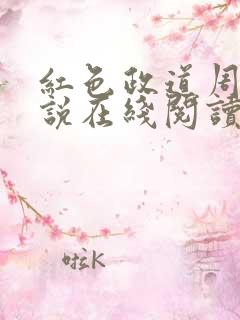 紅色政道周
說在綫閱讀
啦K